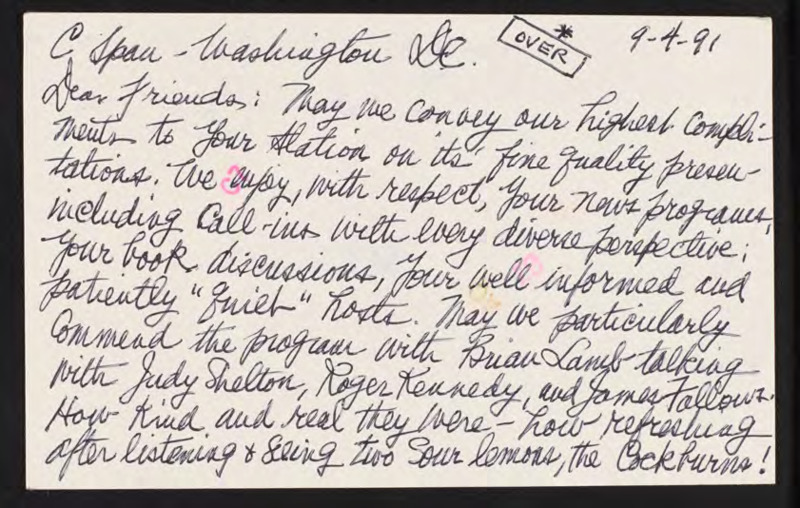 C Span - Washington DC. * OVER 9-4-91
Dear Friends: May we convey our highest compli-
ments to your station on its' fine quality presen-
tations. We enjoy, with respect, your news programs,
including Call-ins with every diverse perspective;
your book discussions, your well informed and
patiently "quiet" hosts. May we particularly
Commend the program with Brian Lamb talking
with Judy Shelton, Roger Kennedy, and James Fallows.
How kind and real they were - how refreshing
after listening & seeing two sour lemons, the Cockburns!